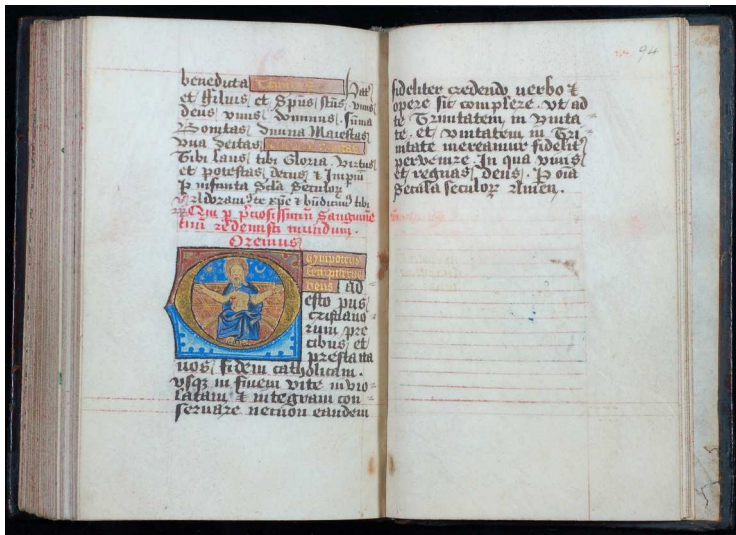 benedicta Trinitas Pat̄
et filius et Sp̄us sc̄us vnus
deus vnus Dominus suma
Bonitas Diuina Maiestas
Vna Deitas
Tibi laus tibi Gloria Virtus
et potestas decus & Imp̄iū
P infinita Sc̄la Seculoꝝ
℣ Adoram᷒ te xpē & bn̄dicim᷒ tibi
℟ Qui p p̄ciosissimū Sanguinē
tuū redemisti mundum.
Oremus
Omnipotens
sempiterne
deus ad
esto pius
cristiano
rum pre
cibus et
presta ita
nos fidem catholicam.
vsqꝫ in finem vite inuio=
latam & integram con=
seruare necnon eandem
94
fideliter credendo uerbo &
opere sic complere. vt ad
te Trinitatem in vnita=
te et vnitatem in Tri
nitate mereamur fidelit̄
pervenire. In qua viuis
et regnas deus. P oīa
Secula seculoꝝ Amen.